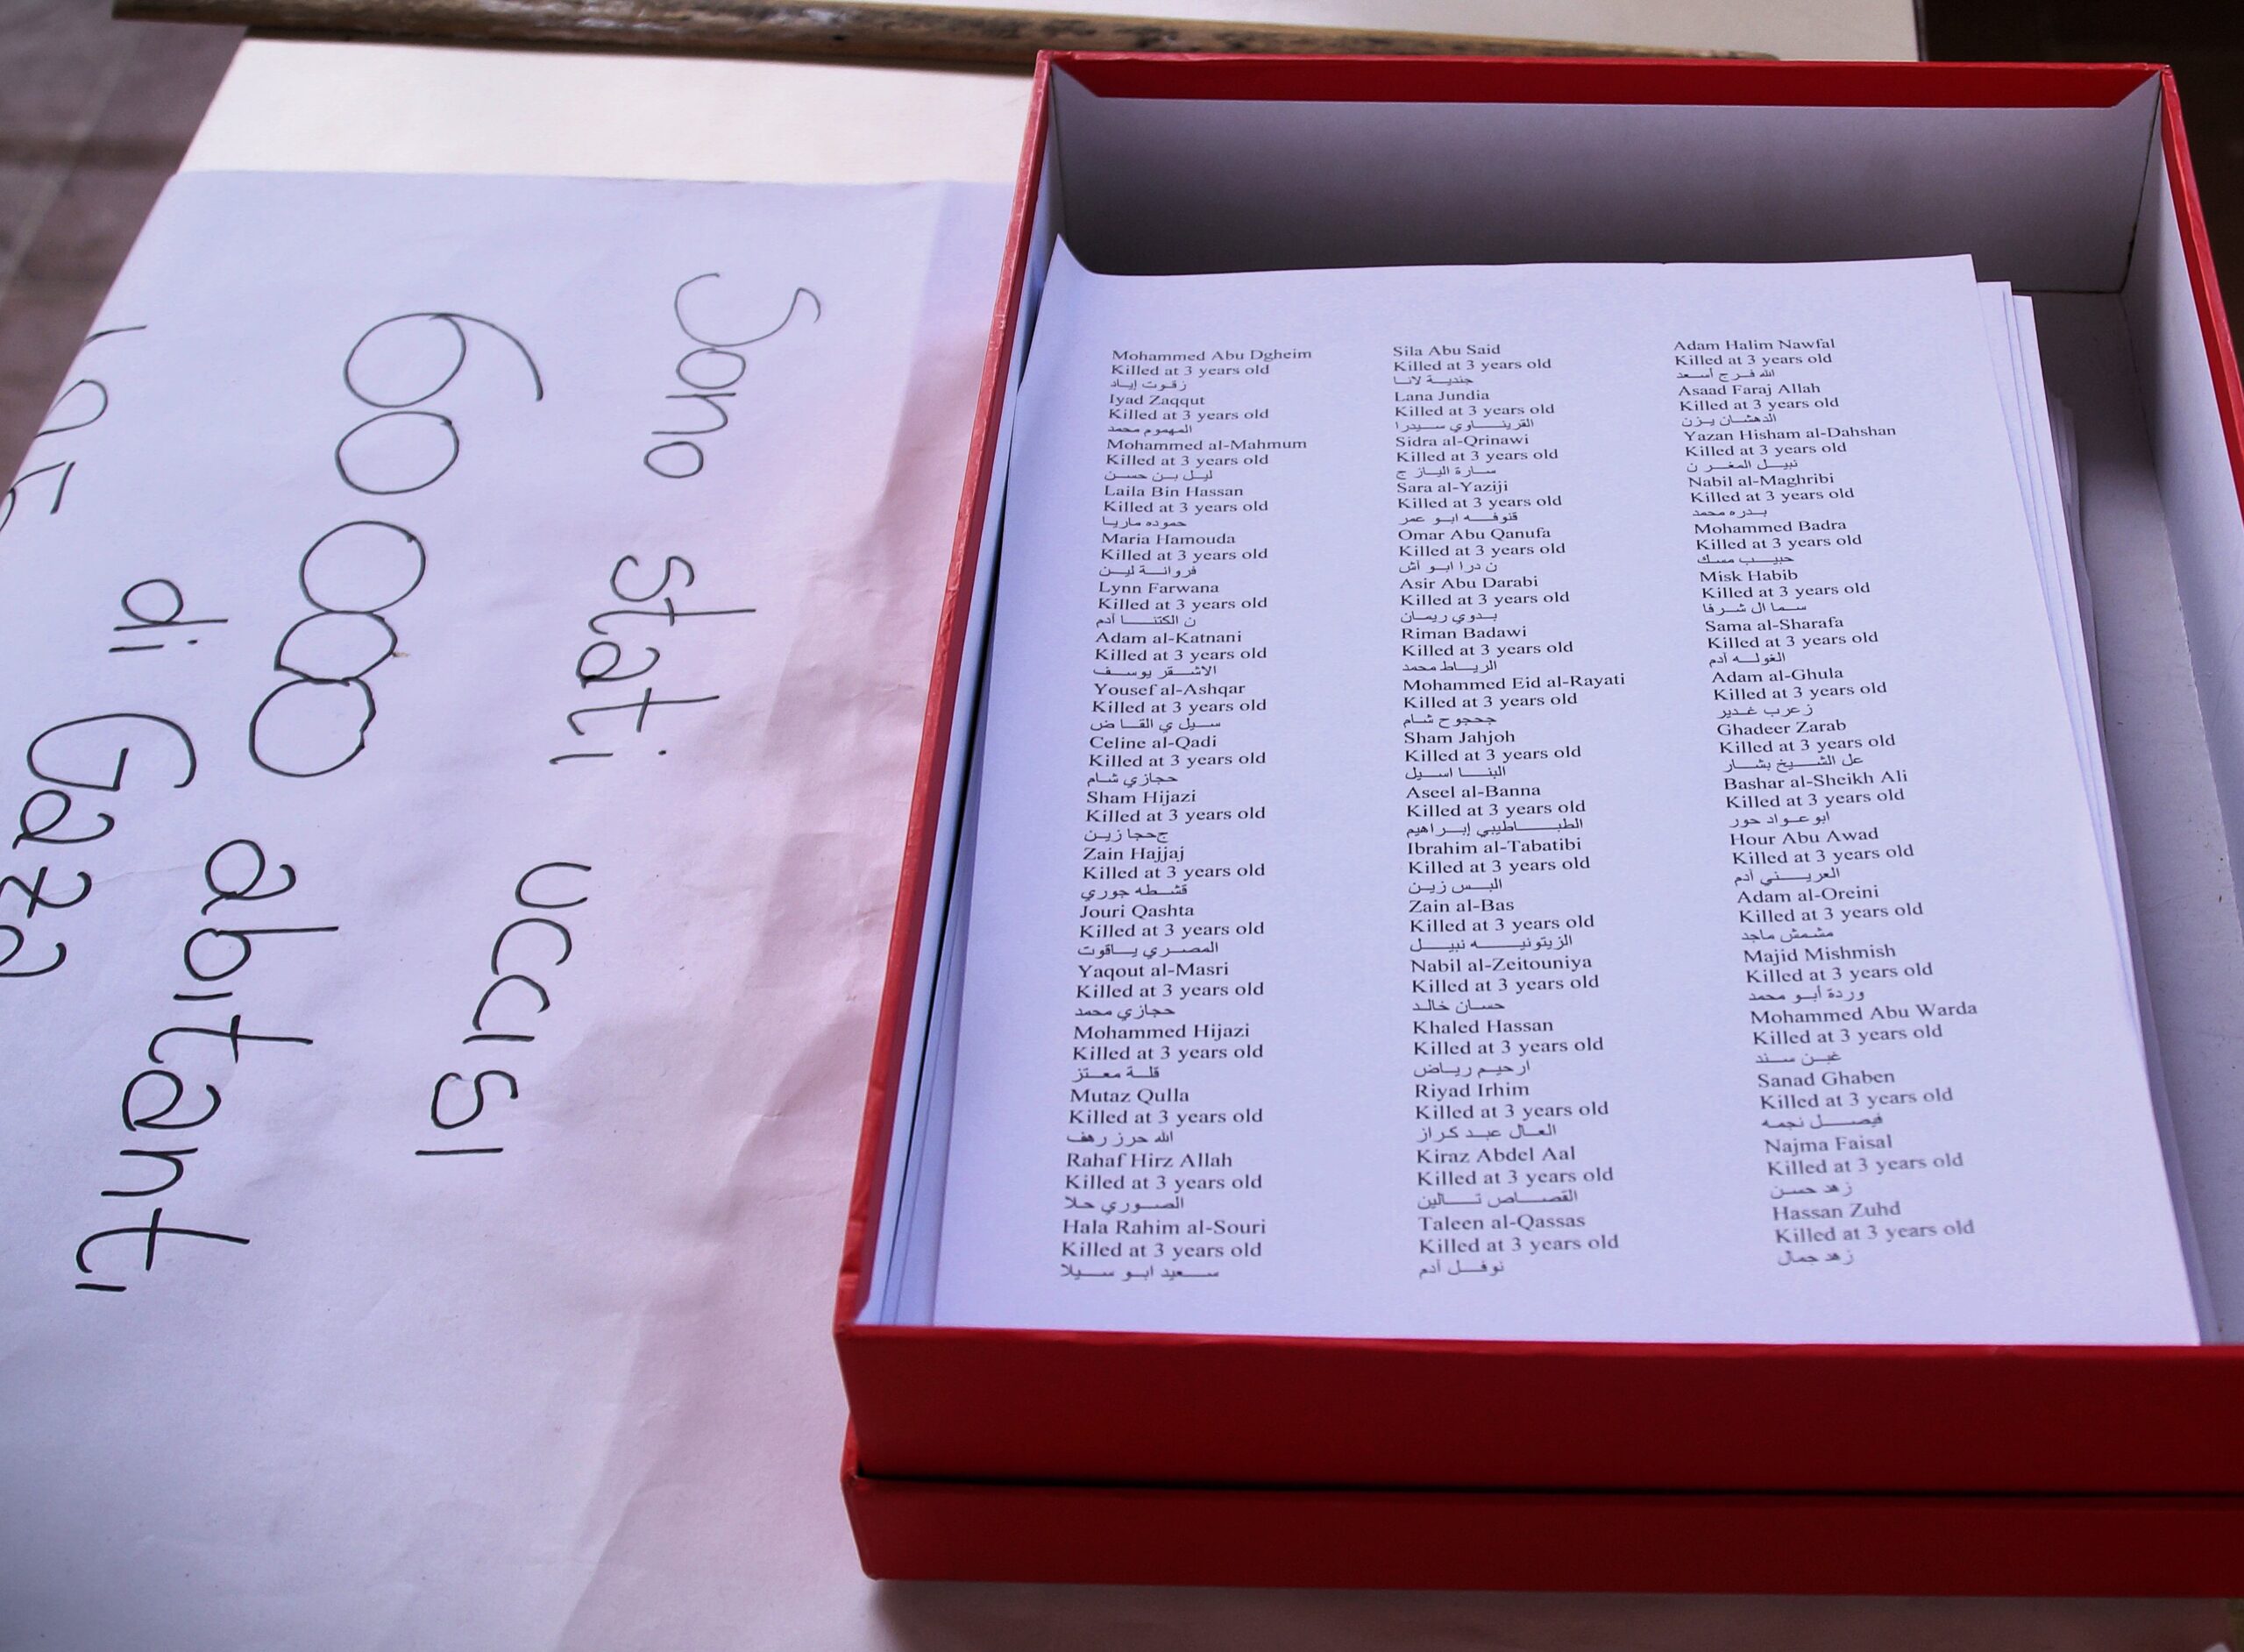 Sono stati uccisi
60000 abitanti
di Gaza
Mohammed Abu Dgheim
Killed at 3 years old
زقوت إياد
Iyad Zaqqut
Killed at 3 years old
المهموم محمد
Mohammed al-Mahmum
Killed at 3 years old
ليل بن حسن
Laila Bin Hassan
Killed at 3 years old
حموده ماريا
Maria Hamouda
Killed at 3 years old
فروانة لين
Lynn Farwana
Killed at 3 years old
ن الكتنا آدم
Adam al-Katnani
Killed at 3 years old
الاشقر يوسف
Yousef al-Ashqar
Killed at 3 years old
سيل ي القا ض
Celine al-Qadi
Killed at 3 years old
حجازي شام
Sham Hijazi
Killed at 3 years old
ججحا زين
Zain Hajjaj
Killed at 3 years old
قشطه جوري
Jouri Qashta
Killed at 3 years old
المصري ياقوت
Yaqout al-Masri
Killed at 3 years old
حجازي محمد
Mohammed Hijazi
Killed at 3 years old
قلة معتز
Mutaz Qulla
Killed at 3 years old
الله حرز رهف
Rahaf Hirz Allah
Killed at 3 years old
الصوري حلا
Hala Rahim al-Souri
Killed at 3 years old
سعيد ابو سيلا
Sila Abu Said
Killed at 3 years old
جندية لانا
Lana Jundia
Killed at 3 years old
القريناوي سيدرا
Sidra al-Qrinawi
Killed at 3 years old
سارة الياز ج
Sara al-Yaziji
Killed at 3 years old
قنوفه ابو عمر
Omar Abu Qanufa
Killed at 3 years old
ن درا ابو آش
Asir Abu Darabi
Killed at 3 years old
بدوي ريمان
Riman Badawi
Killed at 3 years old
الرياط محمد
Mohammed Eid al-Rayati
Killed at 3 years old
جحجوح شام
Sham Jahjoh
Killed at 3 years old
البنا اسيل
Aseel al-Banna
Killed at 3 years old
الطباطيبي إبراهيم
Ibrahim al-Tabatibi
Killed at 3 years old
البس زين
Zain al-Bas
Killed at 3 years old
الزيتونيه نبيل
Nabil al-Zeitouniya
Killed at 3 years old
حسان خالد
Khaled Hassan
Killed at 3 years old
ارحيم رياض
Riyad Irhim
Killed at 3 years old
العال عبد كراز
Kiraz Abdel Aal
Killed at 3 years old
القصاص تالين
Taleen al-Qassas
Killed at 3 years old
نوفل آدم
Adam Halim Nawfal
Killed at 3 years old
الله فرج أسعد
Asaad Faraj Allah
Killed at 3 years old
الدهشان يزن
Yazan Hisham al-Dahshan
Killed at 3 years old
نبيل المغر ن
Nabil al-Maghribi
Killed at 3 years old
بدره محمد
Mohammed Badra
Killed at 3 years old
حبيب مسك
Misk Habib
Killed at 3 years old
سما ال شرفا
Sama al-Sharafa
Killed at 3 years old
الغوله آدم
Adam al-Ghula
Killed at 3 years old
زعرب غدير
Ghadeer Zarab
Killed at 3 years old
عل الشيخ بشار
Bashar al-Sheikh Ali
Killed at 3 years old
ابو عواد حور
Hour Abu Awad
Killed at 3 years old
العريني آدم
Adam al-Oreini
Killed at 3 years old
مشمش ماجد
Majid Mishmish
Killed at 3 years old
وردة أبو محمد
Mohammed Abu Warda
Killed at 3 years old
غبن سند
Sanad Ghaben
Killed at 3 years old
فيصل نجمه
Najma Faisal
Killed at 3 years old
زهد حسن
Hassan Zuhd
Killed at 3 years old
زهد جمال